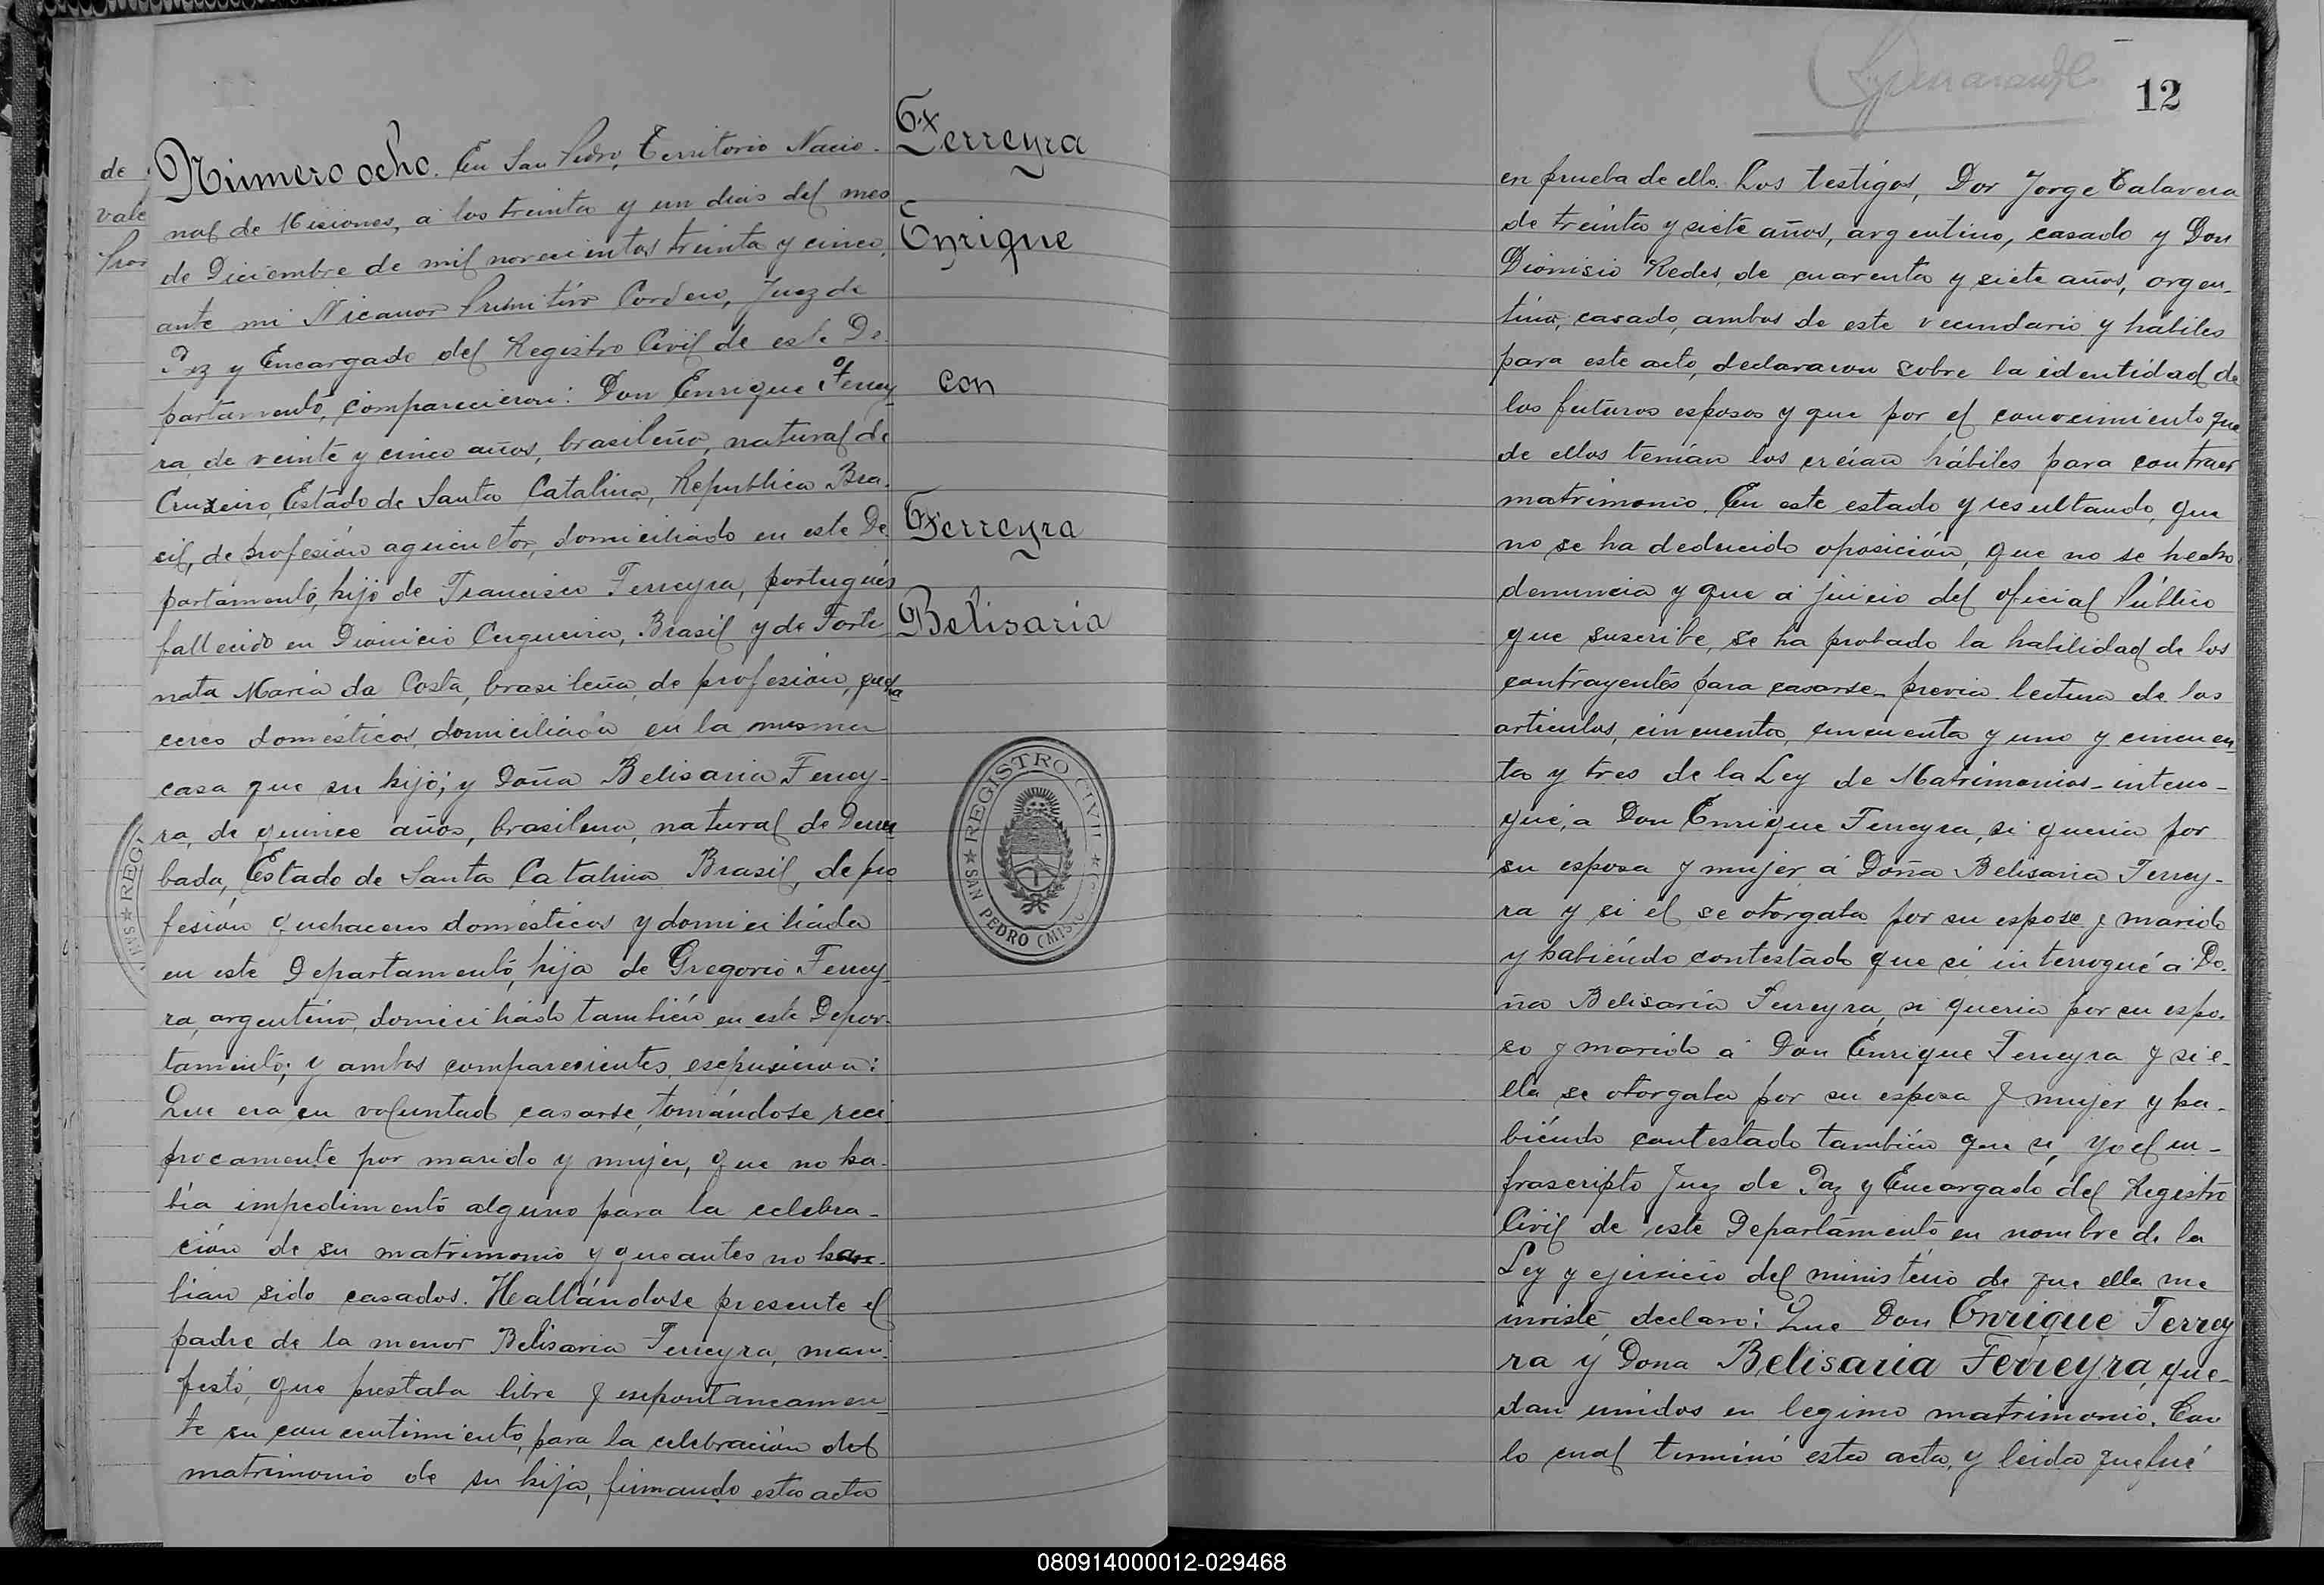 de
vale
Número ocho. En San Pedro, Territorio Nacio-
nal de Misiones, a los treinta y un dias del mes
de Diciembre de mil novecientos treinta y cinco,
ante mi Nicanor Primitivo Cordero, Juez de
Paz y Encargado del Registro Civil de este De-
partamento, comparecieron: Don Enrique Ferrey-
ra, de veinte y cinco años, brasileño, natural de
Cruzeiro, Estado de Santa Catalina, Republica Bra-
sil, de profesión agricultor, domiciliado en este De-
partamento, hijo de Francisco Ferreyra, portugués
fallecido en Dionicio Cerqueira, Brasil y de Forte
nata Maria da Costa, brasileña, de profesión, queha
ceres domésticos, domiciliada en la misma
casa que su hijo; y Doña Belisaria Ferrey-
ra, de quince años, brasilena, natural de Derru
bada, Estado de Santa Catalina Brasil, de pro
fesión quehaceres domésticos y domiciliada
en este Departamento, hija de Gregorio Ferrey-
ra, argentino, domiciliado también en este Depar-
tamento; y ambos comparecientes, esepusieron:
Que era su voluntad casarse, tomándose reci-
procamente por marido y mujer, que no ha-
bia impedimento alguno para la celebra-
ción de su matrimonio y que antes no ha-
bian sido casados. Hallándose presente el
padre de la menor Belisaria Ferreyra, mani-
festó, que prestaba libre y esepontaneamen-
te su concentimiento, para la celebración del
matrimonio de su hija, firmando esta acta
Ferreyra
Enrique
con
Ferreyra
Belisaria
REGISTRO CIVIL
SAN PEDRO (MIS
REGI
12
en prueba de ello. Los testigos, Don Jorge Talavera
de treinta y siete años, argentino, casado y Don
Dionisio Redes, de cuarenta y siete años, argen-
tino, casado, ambos de este vecindario y hábiles
para este acto, declararon sobre la identidad de
los futuros esposos y que por el conocimiento que
de ellos tenían los creían hábiles para contraer
matrimonio. En este estado y resultando, que
no se ha deducido oposición, que no se hecho
denuncia y que a juicio del oficial Público
que suscribe, se ha probado la habilidad de los
contrayentes para casarse_ previa lectura de los
articulos, cincuenta, cincuenta y uno y cincuen-
ta y tres de la Ley de Matrimonios_ interro-
gué, a Don Enrique Ferreyra, si queria por
su esposa y mujer á Doña Belisaria Ferrey-
ra y si el se otorgaba por su esposo y marido
y habiéndo contestado que si interrogué a Do-
ña Belisaria Ferreyra, si queria por su espo-
so y marido a Don Enrique Ferreyra y si e-
lla se otorgaba por su esposa y mujer y ha-
biéndo contestado también que si, yo el in-
frascripto Juez de Paz y Encargado del Registro
Civil de este Departamento en nombre de la
Ley y ejercicio del ministerio de que ella me
inviste, declaro: Que Don Enrique Ferrey
ra y Dona Belisaria Ferreyra, que-
dan unidos en legimo matrimonio. Con
lo cual terminó esta acta, y leida que fué
080914000012-029468